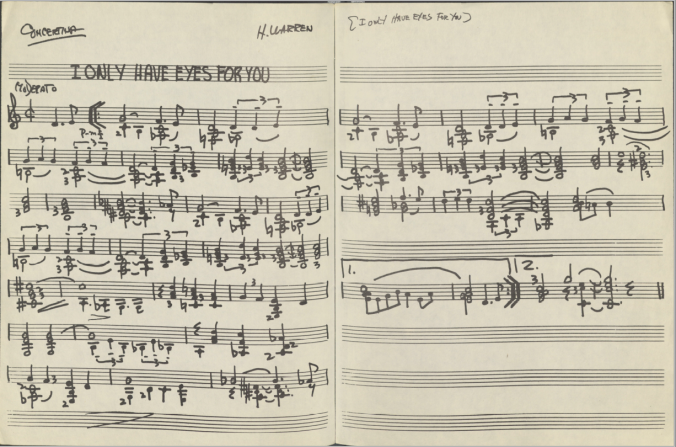 CONCERTINA
H. WARREN
I ONLY HAVE EYES FOR YOU
MODERATO
[I ONLY HAVE EYES FOR YOU]
1.
2.